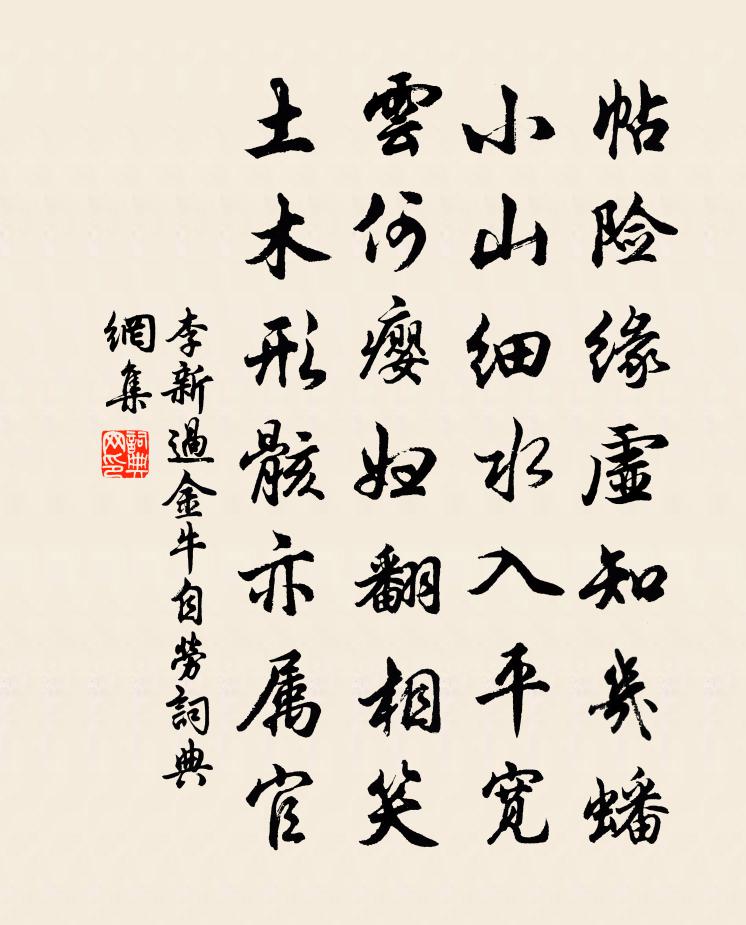 帖险缘虚知幾蟠
小山细水入平宽
雲何瘿妇翻相笑
土木形骸亦属官
李新過金牛自劳詞典
網集
詞典
网印